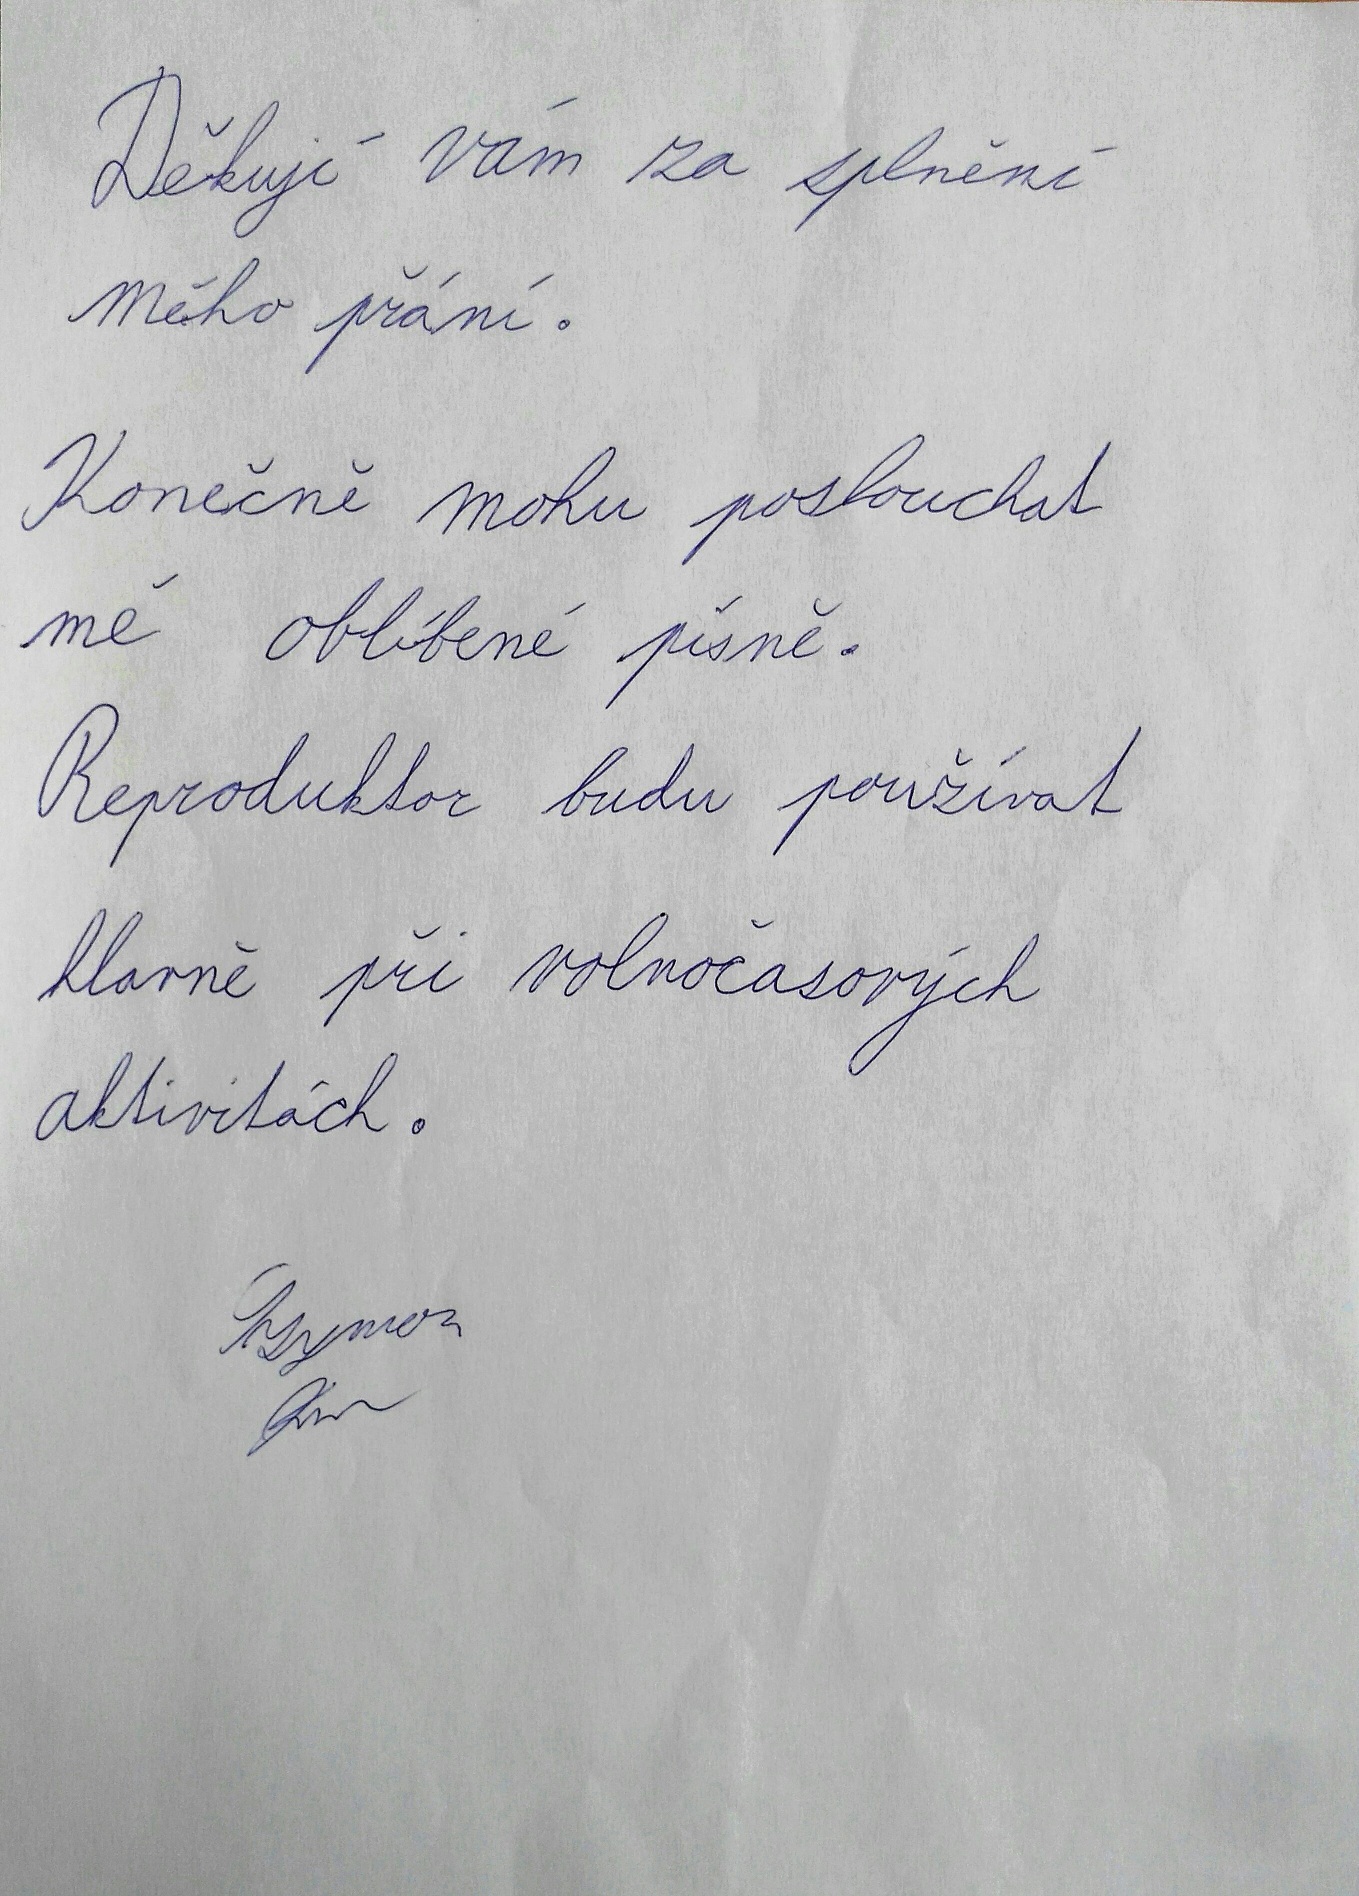 Děkuji vám za splnění
mého přání.
Konečně mohu poslouchat
mé oblíbené písně.
Reproduktor budu používat
hlavně při volnočasových
aktivitách.